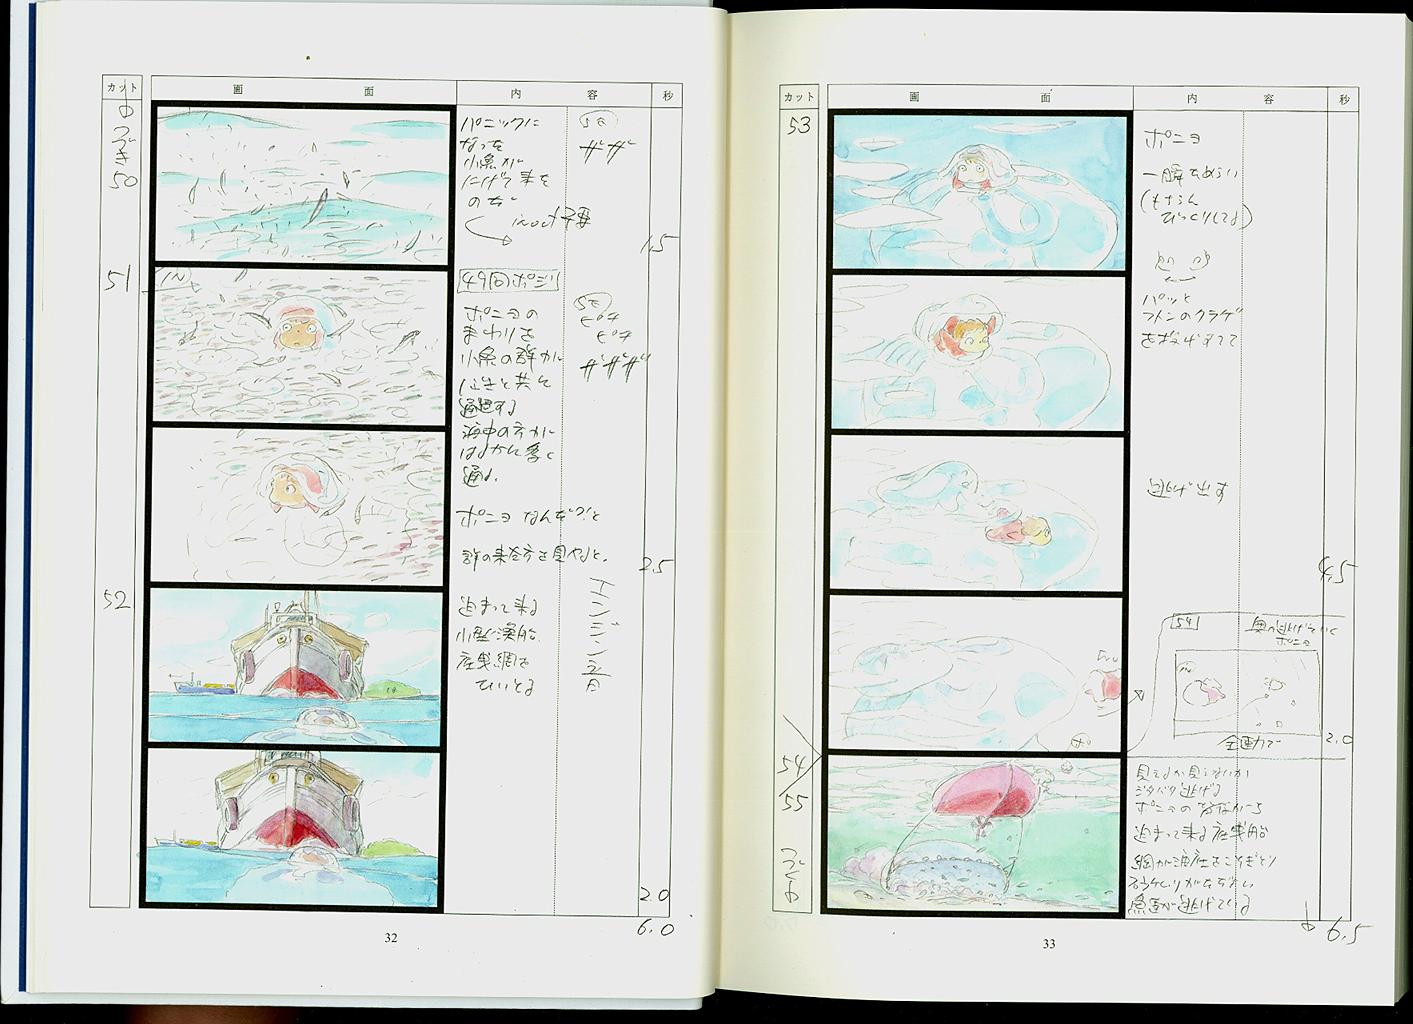 カット
画 面
内 容
秒
つづき
50
パニックに
なった
小魚が
にげて来た
のだ
SE
ザザ
1.5
51
IN
49回ポジ
ポニョの
まわりを
小魚の群が
通過する
SE
ピチ
ピチ
ザザザ
海中の方が
はるかに多く
通る。
ポニョ なんだ?!と
群の来た方を見やると、
2.5
52
迫って来る
小型漁船、
底曳網を
ひいてる
エンジン音
2.0
6.0
32
カット
画 面
内 容
秒
53
ポニョ
一瞬ためらい
(もちろん
びっくりしてる)
パッと
フトンのクラゲ
を投げすてて
逃げ出す
4.5
54
奥へ逃げていく
ポニョ
全動で
2.0
54
55
つづく
見えるか見えないか
ジタバタ逃げる
ポニョの
迫って来る底曳船
網が海底をこそぎとり
魚達が逃げている
6.5
33